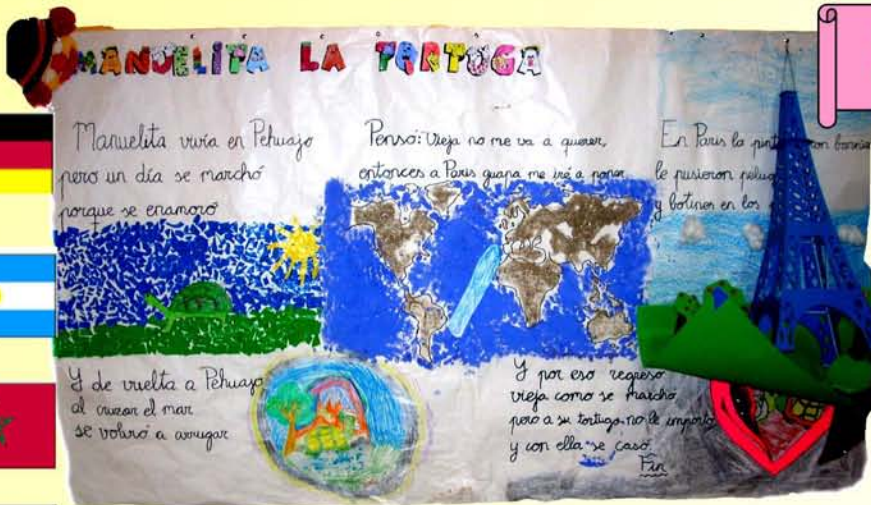 MANUELITA LA TORTUGA
Manuelita vivía en Pehuajo
pero un día se marchó
porque se enamoró
Pensó: Vieja no me va a querer,
entonces a Paris guapa me iré a poner
En Paris la con
le pusieron
y botines en los
Y de vuelta a Pehuajo
al cruzar el mar
se volvió a arrugar
Y por eso regreso
vieja como se marchó
pero a su tortugo no le importo
y con ella se casó.
Fin